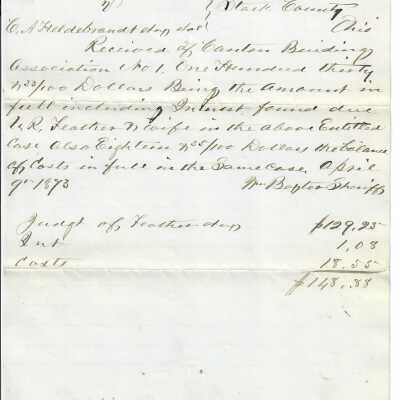 vs } Stark County
C. A. Heldebrandt Ohio
Received of Canton Building
Association No 1. One Hundred thirty
33/100 Dollars Being the Amount in
full including Interest found due
Feather & wife in the above Entitled
Case Also Eighteen 55/100 Dollars the balance
of Costs in full in the Same Case. April
9th 1873 Wm Sheriff
Judgt of Feather
Int 1.08
Costs 18.55
$148.88